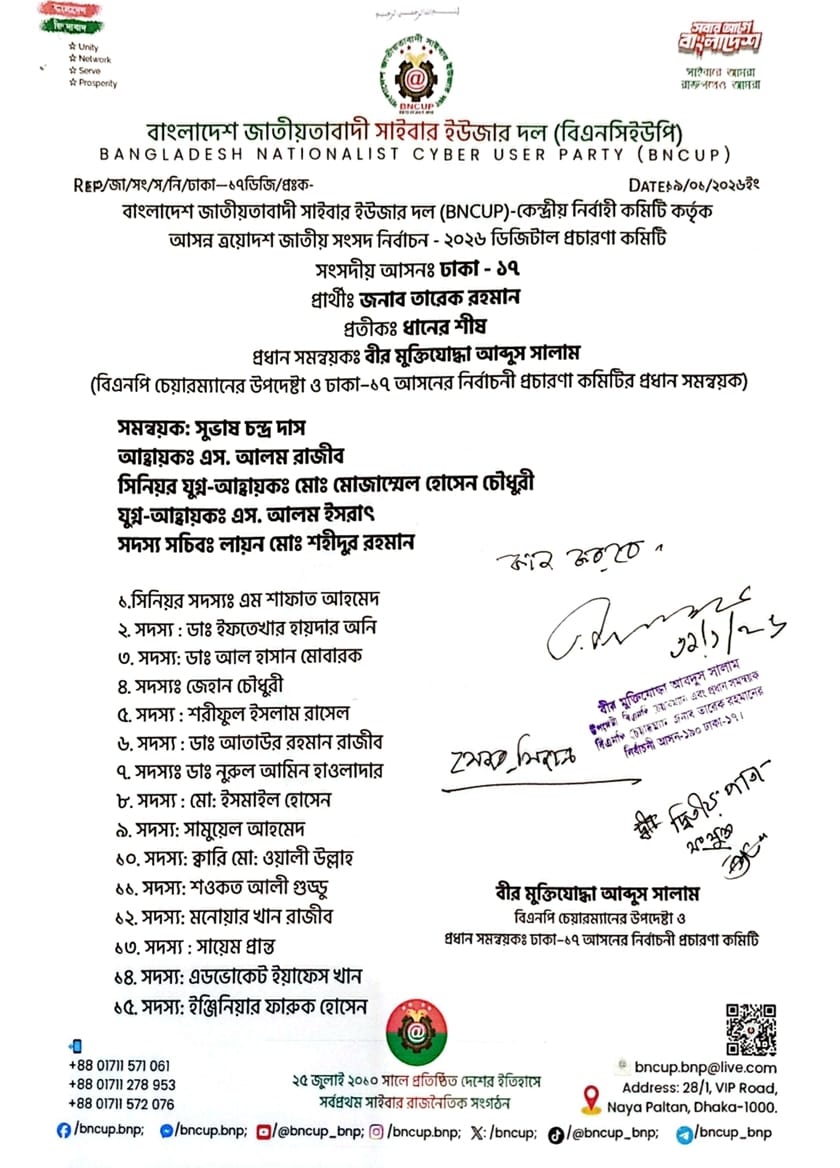 বাংলাদেশ
জিন্দাবাদ
☆ Unity
☆ Network
☆ Serve
☆ Prosperity
BNCUP
সবার আগে
বাংলাদেশ
সাইবারে আমরা
রাজপথেও আমরা
বাংলাদেশ জাতীয়তাবাদী সাইবার ইউজার দল (বিএনসিইউপি)
BANGLADESH NATIONALIST CYBER USER PARTY (BNCUP)
REP/জা/সং/স/নি/ঢাকা–১৭ডিজি/প্রঃক- DATEঃ১৯/০১/২০২৬ইং
বাংলাদেশ জাতীয়তাবাদী সাইবার ইউজার দল (BNCUP)-কেন্দ্রীয় নির্বাহী কমিটি কর্তৃক
আসন্ন ত্রয়োদশ জাতীয় সংসদ নির্বাচন - ২০২৬ ডিজিটাল প্রচারণা কমিটি
সংসদীয় আসনঃ ঢাকা - ১৭
প্রার্থীঃ জনাব তারেক রহমান
প্রতীকঃ ধানের শীষ
প্রধান সমন্বয়কঃ বীর মুক্তিযোদ্ধা আব্দুস সালাম
(বিএনপি চেয়ারম্যানের উপদেষ্টা ও ঢাকা–১৭ আসনের নির্বাচনী প্রচারণা কমিটির প্রধান সমন্বয়ক)
সমন্বয়ক: সুভাষ চন্দ্র দাস
আহ্বায়কঃ এস. আলম রাজীব
সিনিয়র যুগ্ন-আহ্বায়কঃ মোঃ মোজাম্মেল হোসেন চৌধুরী
যুগ্ন-আহ্বায়কঃ এস. আলম ইসরাৎ
সদস্য সচিবঃ লায়ন মোঃ শহীদুর রহমান
১.সিনিয়র সদস্যঃ এম শাফাত আহমেদ
২. সদস্য : ডাঃ ইফতেখার হায়দার অনি
৩. সদস্য: ডাঃ আল হাসান মোবারক
৪. সদস্যঃ জেহান চৌধুরী
৫. সদস্য : শরীফুল ইসলাম রাসেল
৬. সদস্য : ডাঃ আতাউর রহমান রাজীব
৭. সদস্যঃ ডাঃ নুরুল আমিন হাওলাদার
৮. সদস্য : মো: ইসমাইল হোসেন
৯. সদস্য: সামুয়েল আহমেদ
১০. সদস্য: ক্বারি মো: ওয়ালী উল্লাহ
১১. সদস্য: শওকত আলী গুড্ডু
১২. সদস্য: মনোয়ার খান রাজীব
১৩. সদস্য : সায়েম প্রান্ত
১৪. সদস্য: এডভোকেট ইয়াফেস খান
১৫. সদস্য: ইঞ্জিনিয়ার ফারুক হোসেন
বীর মুক্তিযোদ্ধা আবদুস সালাম
উপদেষ্টা বিএনপি চেয়ারম্যান এবং প্রধান সমন্বয়ক
বিএনপি চেয়ারম্যান জনাব তারেক রহমানের
নির্বাচনী আসন-১৯০ ঢাকা-১৭।
দ্বিতীয় পাতা
সংযুক্ত
বীর মুক্তিযোদ্ধা আব্দুস সালাম
বিএনপি চেয়ারম্যানের উপদেষ্টা ও
প্রধান সমন্বয়কঃ ঢাকা–১৭ আসনের নির্বাচনী প্রচারণা কমিটি
+88 01711 571 061
+88 01711 278 953
+88 01711 572 076
২৫ জুলাই ২০১০ সালে প্রতিষ্ঠিত দেশের ইতিহাসে
সর্বপ্রথম সাইবার রাজনৈতিক সংগঠন
bncup.bnp@live.com
Address: 28/1, VIP Road,
Naya Paltan, Dhaka-1000.
/bncup.bnp; /bncup.bnp; /@bncup_bnp; /bncup.bnp; X:/bncup; /@bncup_bnp; /bncup_bnp